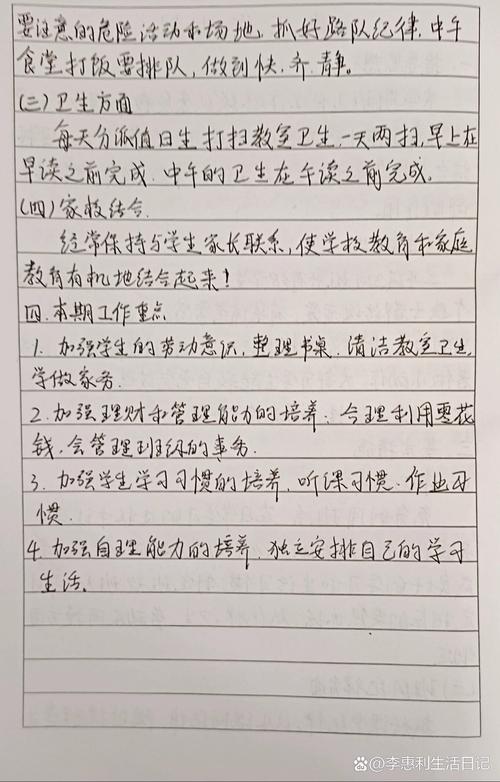 要注意的危险活动和场地。抓好路队纪律,中午
食堂打饭要排队,做到快.齐.静。
(三)卫生方面
每天分派值日生打扫教室卫生.一天两扫,早上在
早读之前完成.中午的卫生在午读之前完成.
(四)家校结合.
经常保持与学生家长联系,使学校教育和家庭
教育有机地结合起来!
四.本期工作重点
1.加强学生的劳动意识,整理书桌.清洁教室卫生,
学做家务.
2.加强理财和管理能力的培养、合理利用零花
钱.会管理班级的事务.
3.加强学生学习习惯的培养,听课习惯.作业习
惯.
4.加强自理能力的培养,独立安排自己的学习
生活.
@李惠利生活日记